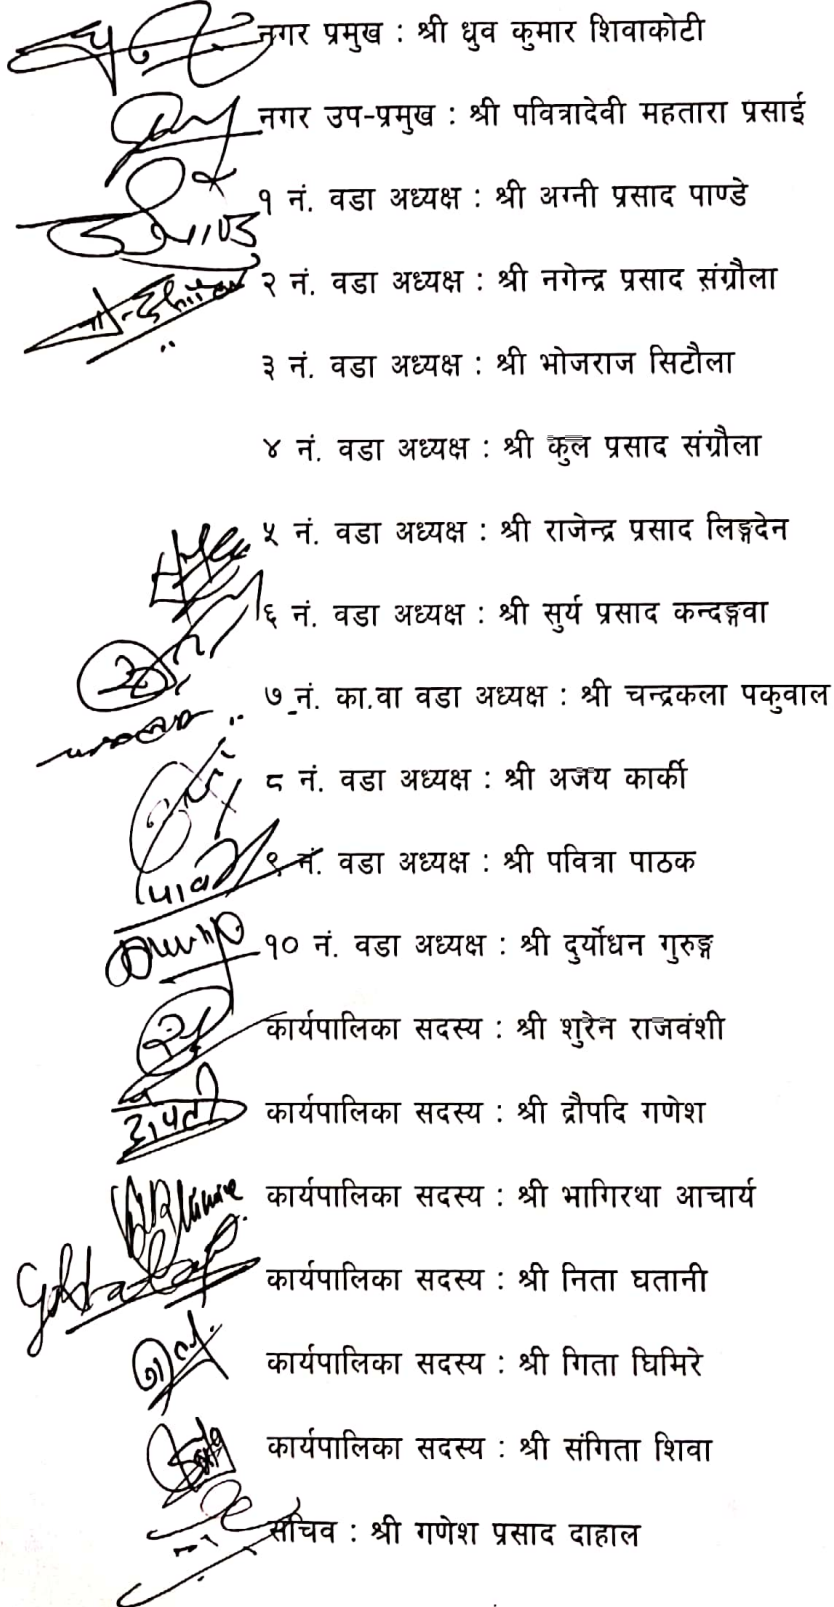 नगर प्रमुख : श्री ध्रुव कुमार शिवाकोटी
नगर उप-प्रमुख : श्री पवित्रादेवी महतारा प्रसाई
१ नं. वडा अध्यक्ष : श्री अग्नी प्रसाद पाण्डे
२ नं. वडा अध्यक्ष : श्री नगेन्द्र प्रसाद संग्रौला
३ नं. वडा अध्यक्ष : श्री भोजराज सिटौला
४ नं. वडा अध्यक्ष : श्री कुल प्रसाद संग्रौला
५ नं. वडा अध्यक्ष : श्री राजेन्द्र प्रसाद लिङ्गदेन
६ नं. वडा अध्यक्ष : श्री सुर्य प्रसाद कन्दङ्गवा
७ नं. का.वा वडा अध्यक्ष : श्री चन्द्रकला पकुवाल
८ नं. वडा अध्यक्ष : श्री अजय कार्की
९ नं. वडा अध्यक्ष : श्री पवित्रा पाठक
१० नं. वडा अध्यक्ष : श्री दुर्योधन गुरुङ्ग
कार्यपालिका सदस्य : श्री शुरेन राजवंशी
कार्यपालिका सदस्य : श्री द्रौपदि गणेश
कार्यपालिका सदस्य : श्री भागिरथा आचार्य
कार्यपालिका सदस्य : श्री निता घतानी
कार्यपालिका सदस्य : श्री गिता घिमिरे
कार्यपालिका सदस्य : श्री संगिता शिवा
सचिव : श्री गणेश प्रसाद दाहाल